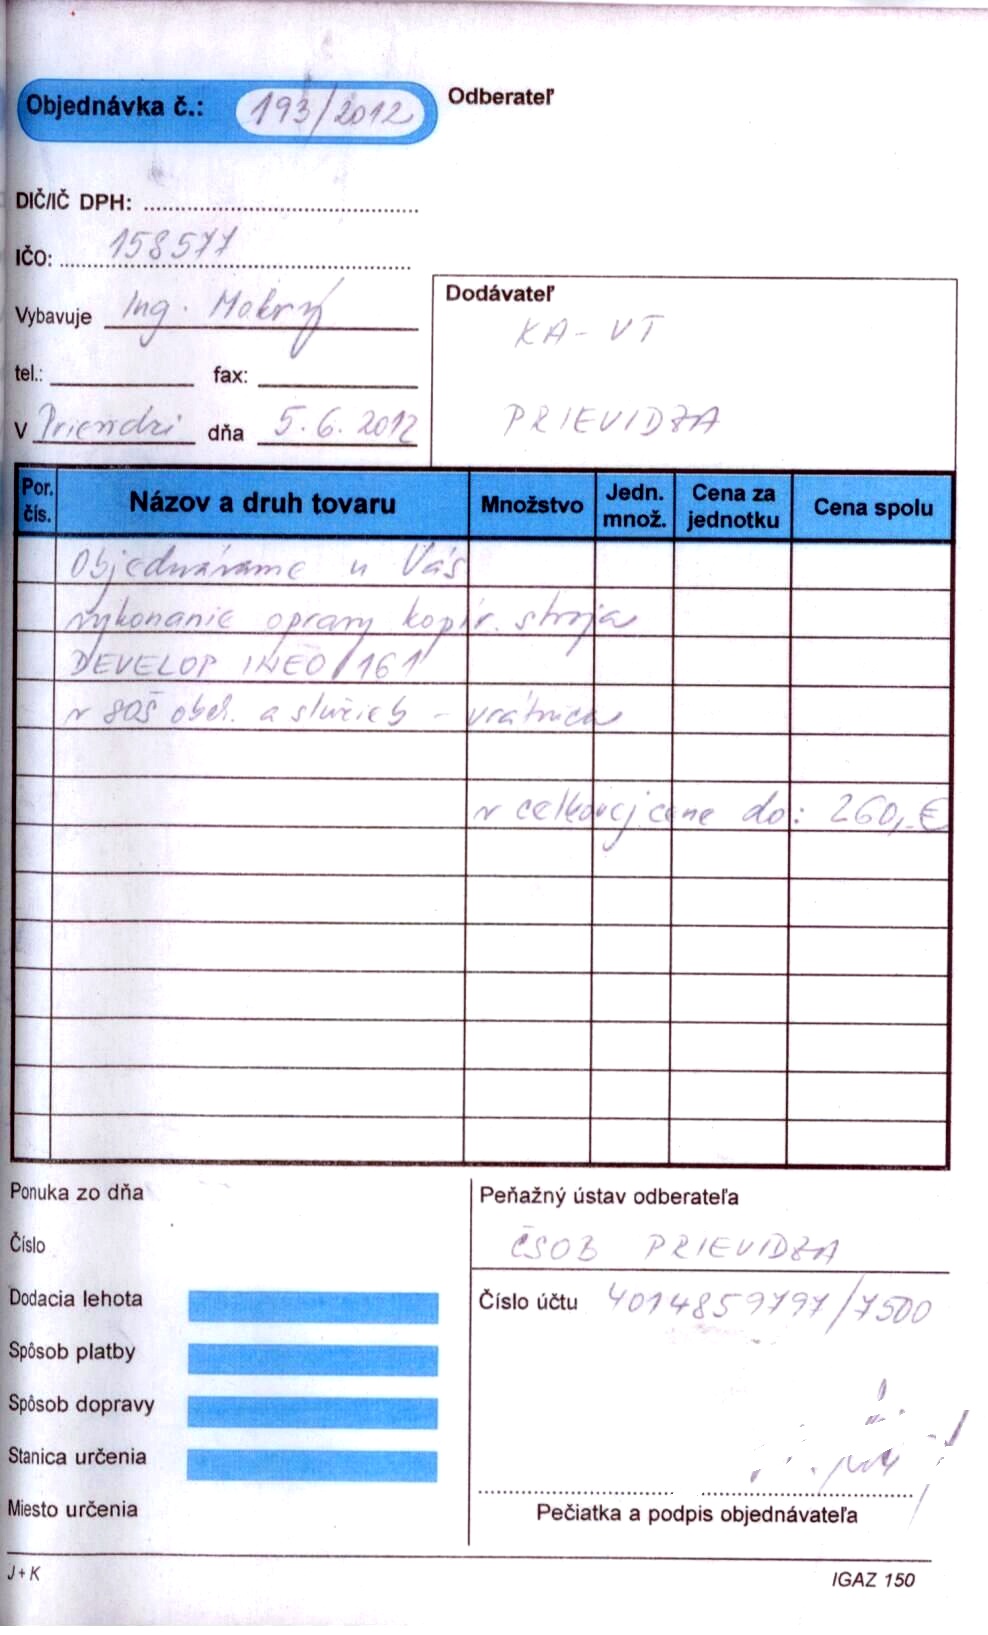 Objednávka č.: 193/2012
Odberateľ
DIČ/IČ DPH:
IČO: 158577
Vybavuje Ing. Mokrý
tel.: fax:
V Prievidzi dňa 5.6.2012
Dodávateľ
KA-VT
PRIEVIDZA
Por. čís. Názov a druh tovaru Množstvo Jedn. množ. Cena za jednotku Cena spolu
Objednávame u Vás
vykonanie opravy kopír. stroja
DEVELOP INEO 161
v SOŠ obch. a služieb - vrátnica
v celkovej cene do: 260,-€
Ponuka zo dňa
Číslo
Dodacia lehota
Spôsob platby
Spôsob dopravy
Stanica určenia
Miesto určenia
Peňažný ústav odberateľa
ČSOB PRIEVIDZA
Číslo účtu 4014859797/7500
Pečiatka a podpis objednávateľa
J+K
IGAZ 150